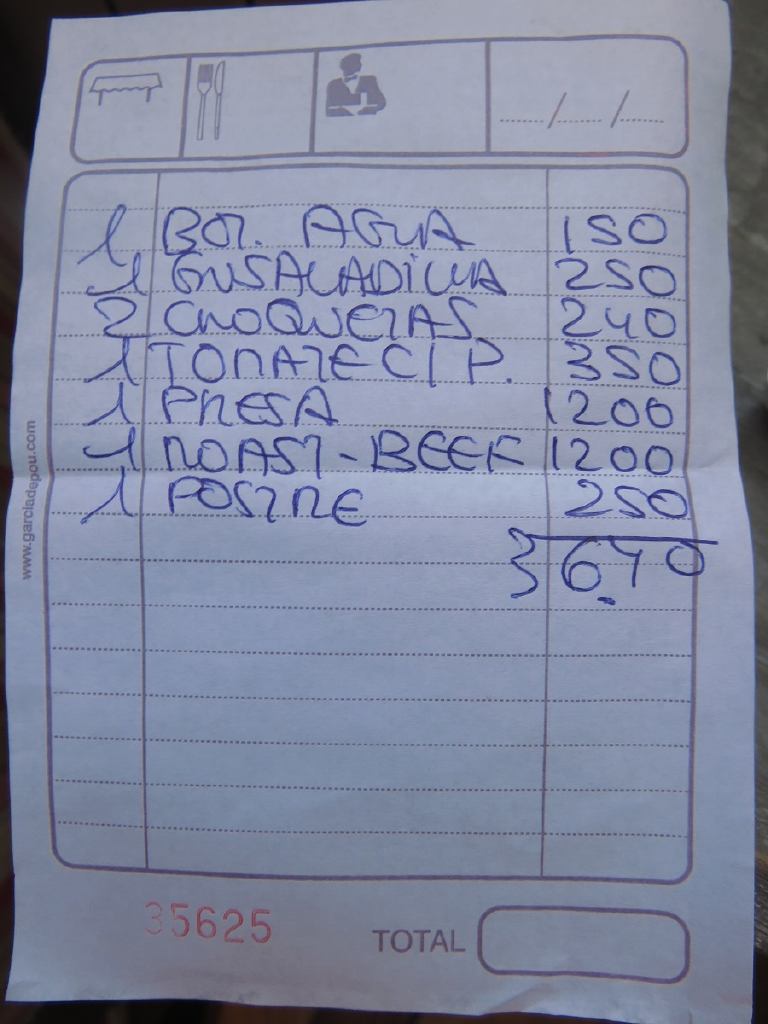 ..../..../....
1 BOT. AGUA 150
1 ENSALADILLA 250
2 CROQUETAS 240
1 TOMATE C/ P. 350
1 PRESA 1200
1 ROAST-BEEF 1200
1 POSTRE 250
36.40
www.garciadepou.com
35625
TOTAL